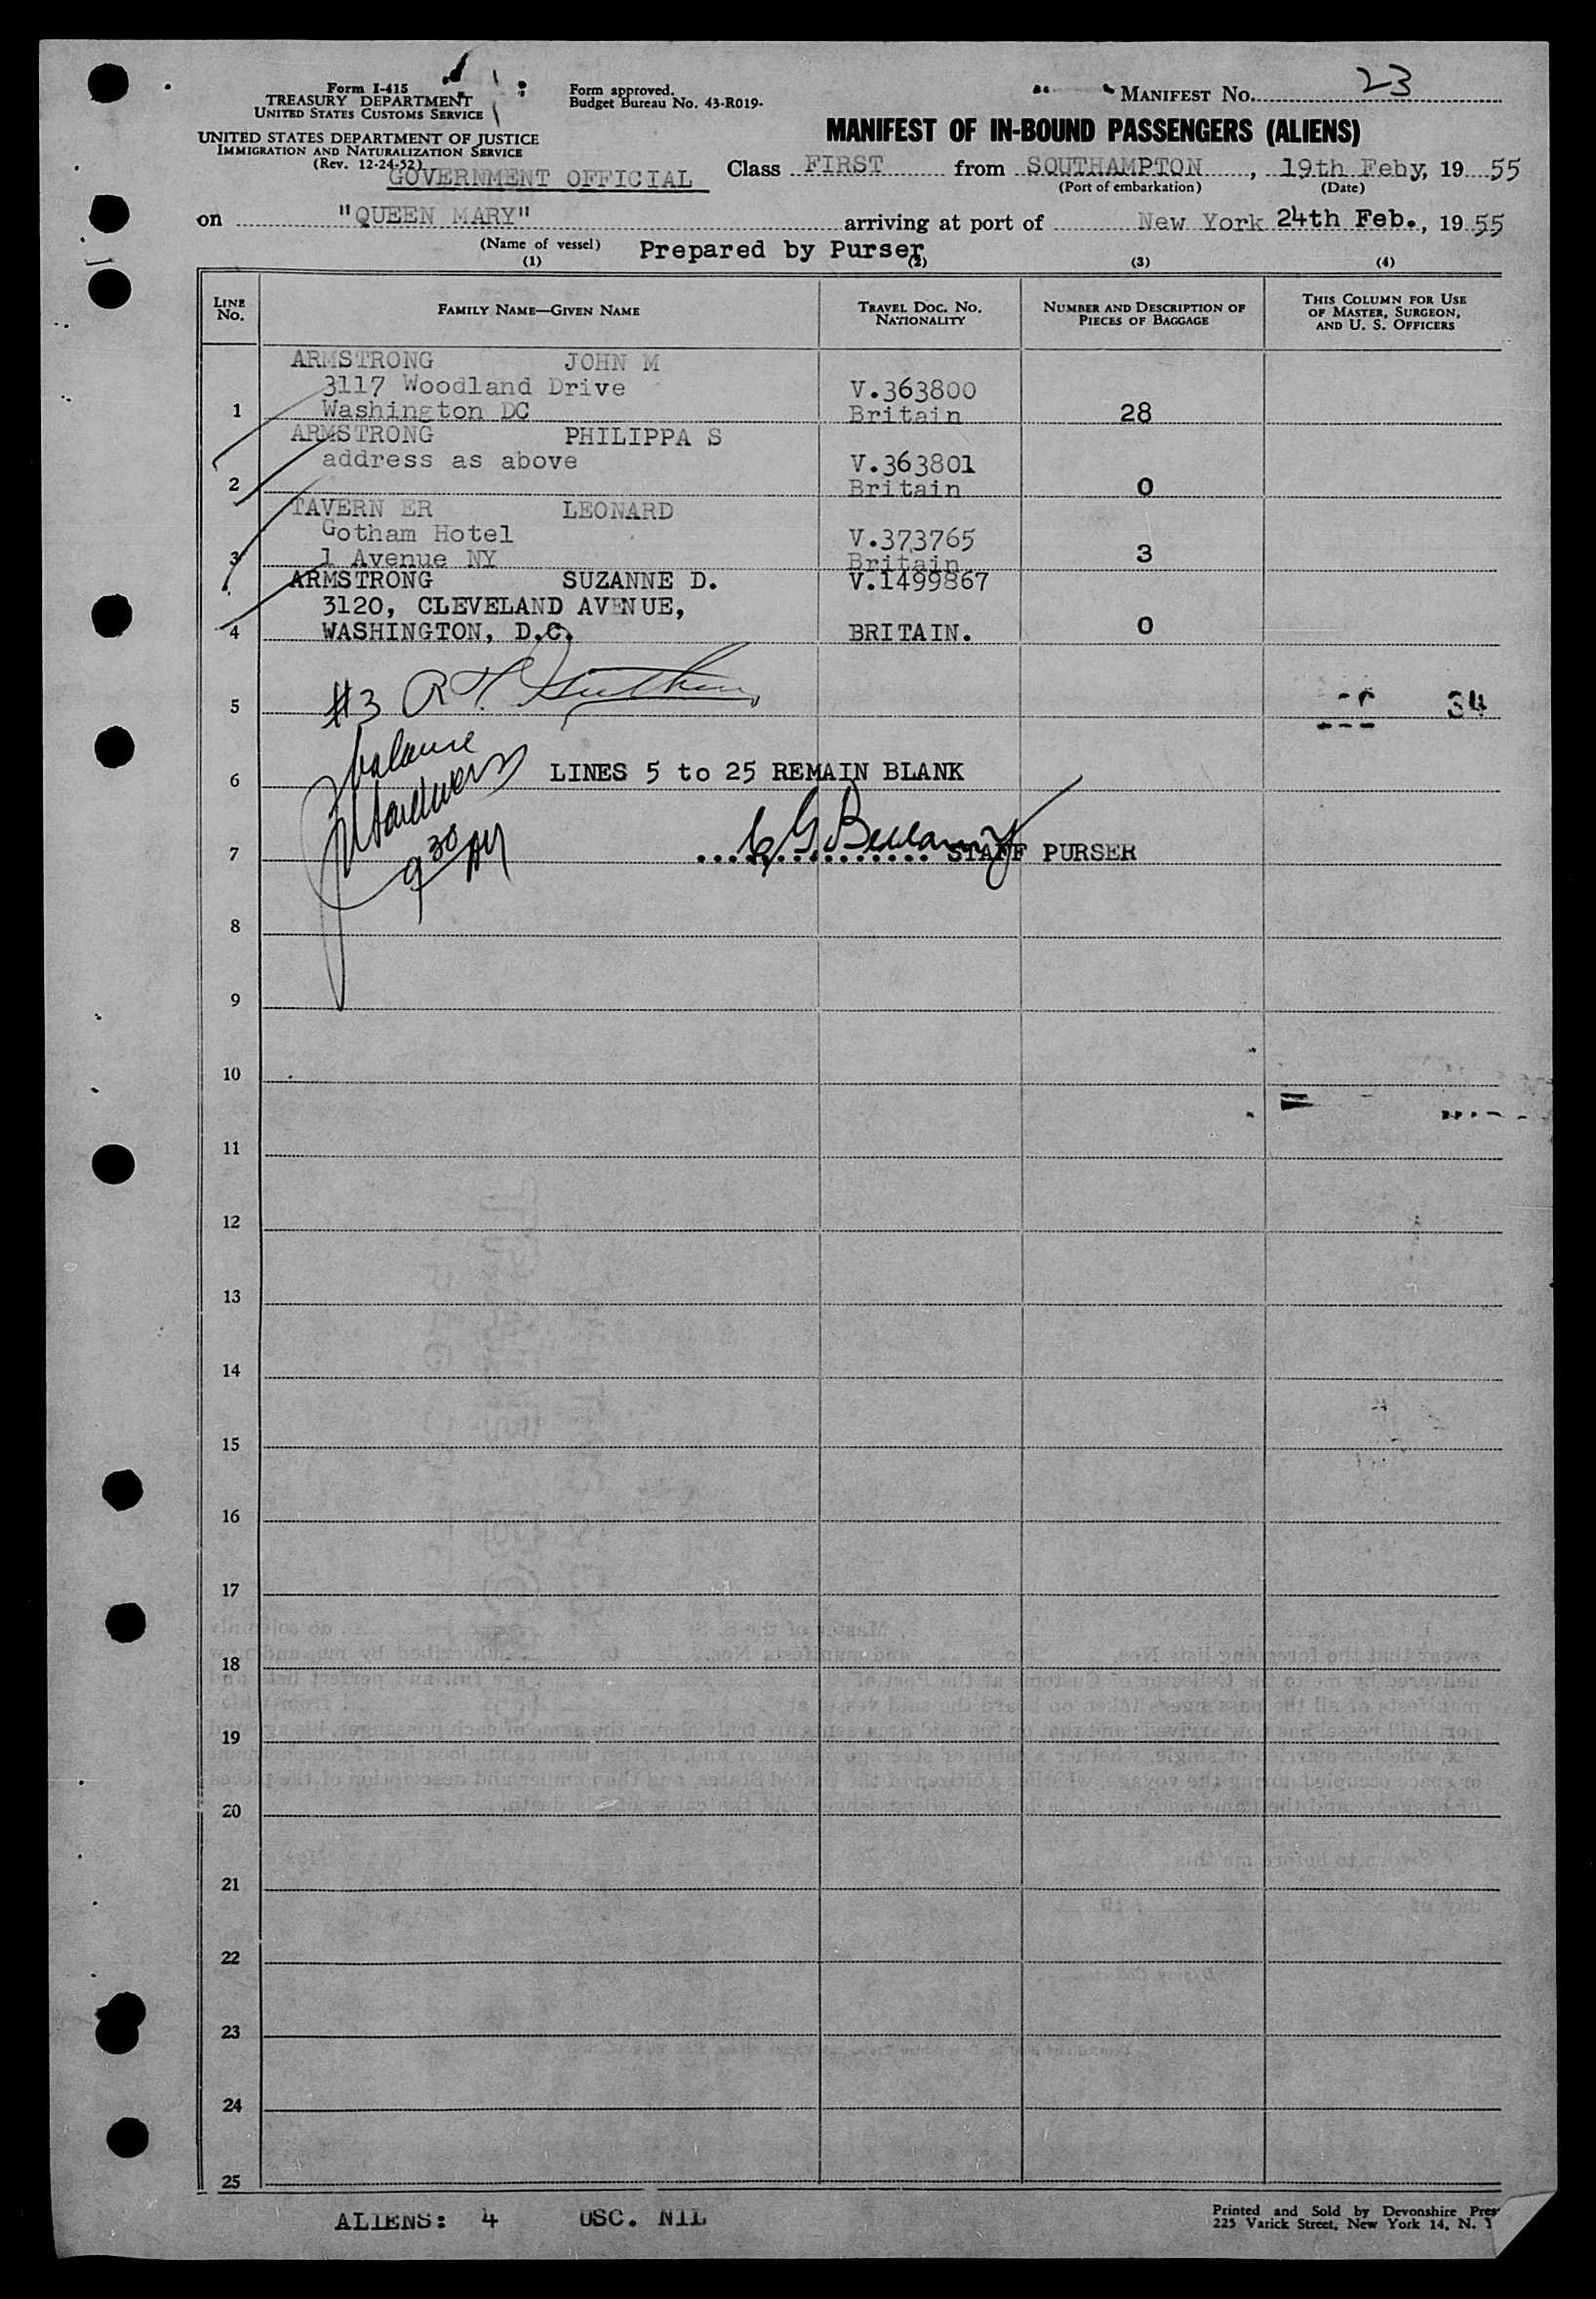 Form I-415
TREASURY DEPARTMENT
UNITED STATES CUSTOMS SERVICE
UNITED STATES DEPARTMENT OF JUSTICE
IMMIGRATION AND NATURALIZATION SERVICE
(Rev. 12-24-52)
GOVERNMENT OFFICIAL
Form approved.
Budget Bureau No. 43-R019-
MANIFEST NO. 23
MANIFEST OF IN-BOUND PASSENGERS (ALIENS)
Class FIRST from SOUTHAMPTON, 19th Feby, 19 55
(Port of embarkation) (Date)
on "QUEEN MARY" arriving at port of New York 24th Feb., 19 55
(Name of vessel) Prepared by Purser
(1) (2) (3) (4)
LINE NO. FAMILY NAME—GIVEN NAME TRAVEL DOC. NO. NATIONALITY NUMBER AND DESCRIPTION OF PIECES OF BAGGAGE THIS COLUMN FOR USE OF MASTER, SURGEON, AND U. S. OFFICERS
ARMSTRONG JOHN M
3117 Woodland Drive V.363800
1 Washington DC Britain 28
ARMSTRONG PHILIPPA S
address as above V.363801
2 Britain 0
TAVERN ER LEONARD
Gotham Hotel V.373765
3 1 Avenue NY Britain 3
ARMSTRONG SUZANNE D. V.1499867
3120, CLEVELAND AVENUE,
4 WASHINGTON, D.C. BRITAIN. 0
#3 R
5 34
balance
6 LINES 5 to 25 REMAIN BLANK
9 30 AM
7 C G Bellamy STAFF PURSER
8
9
10
11
12
13
14
15
16
17
18
19
20
21
22
23
24
25
ALIENS: 4 USC. NIL
Printed and Sold by Devonshire Pres
225 Varick Street, New York 14, N. Y